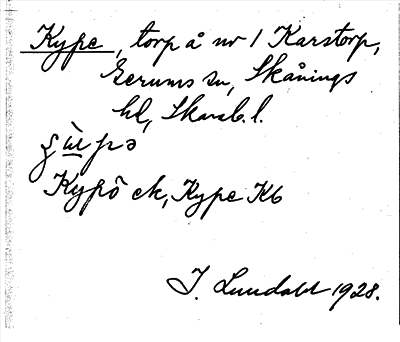 Kype, torp å nr 1 Karstorp,
Gerums sn, Skånings
hd, Skarab. l.
Kypö ek, Kype Kb
I. Lundahl 1928.